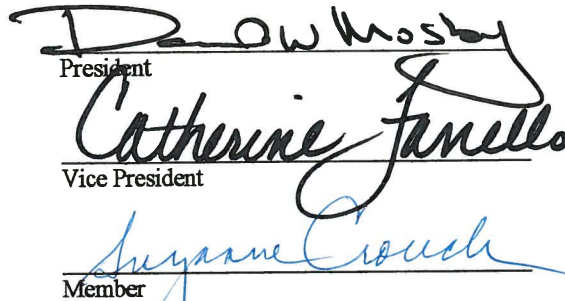 David W Mosby
President
Catherine Fanello
Vice President
Suzanne Crouch
Member